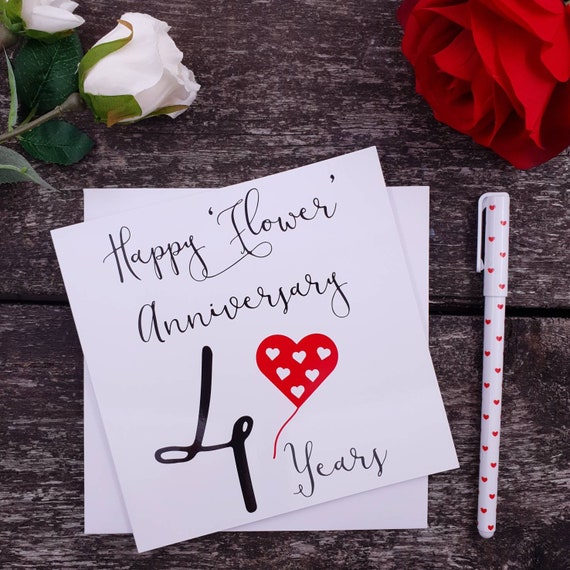 Happy 'Flower'
Anniversary
4
Years